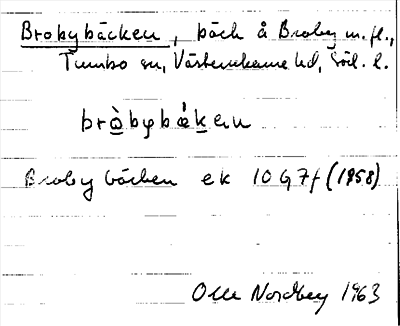 Brobybäcken, bäck å Broby m.fl.,
Tumbo sn, Västerrekarne hd, Söd. l.
bròbybä́ken
Brobybäcken ek 10G7f (1958)
Olle Nordberg 1963